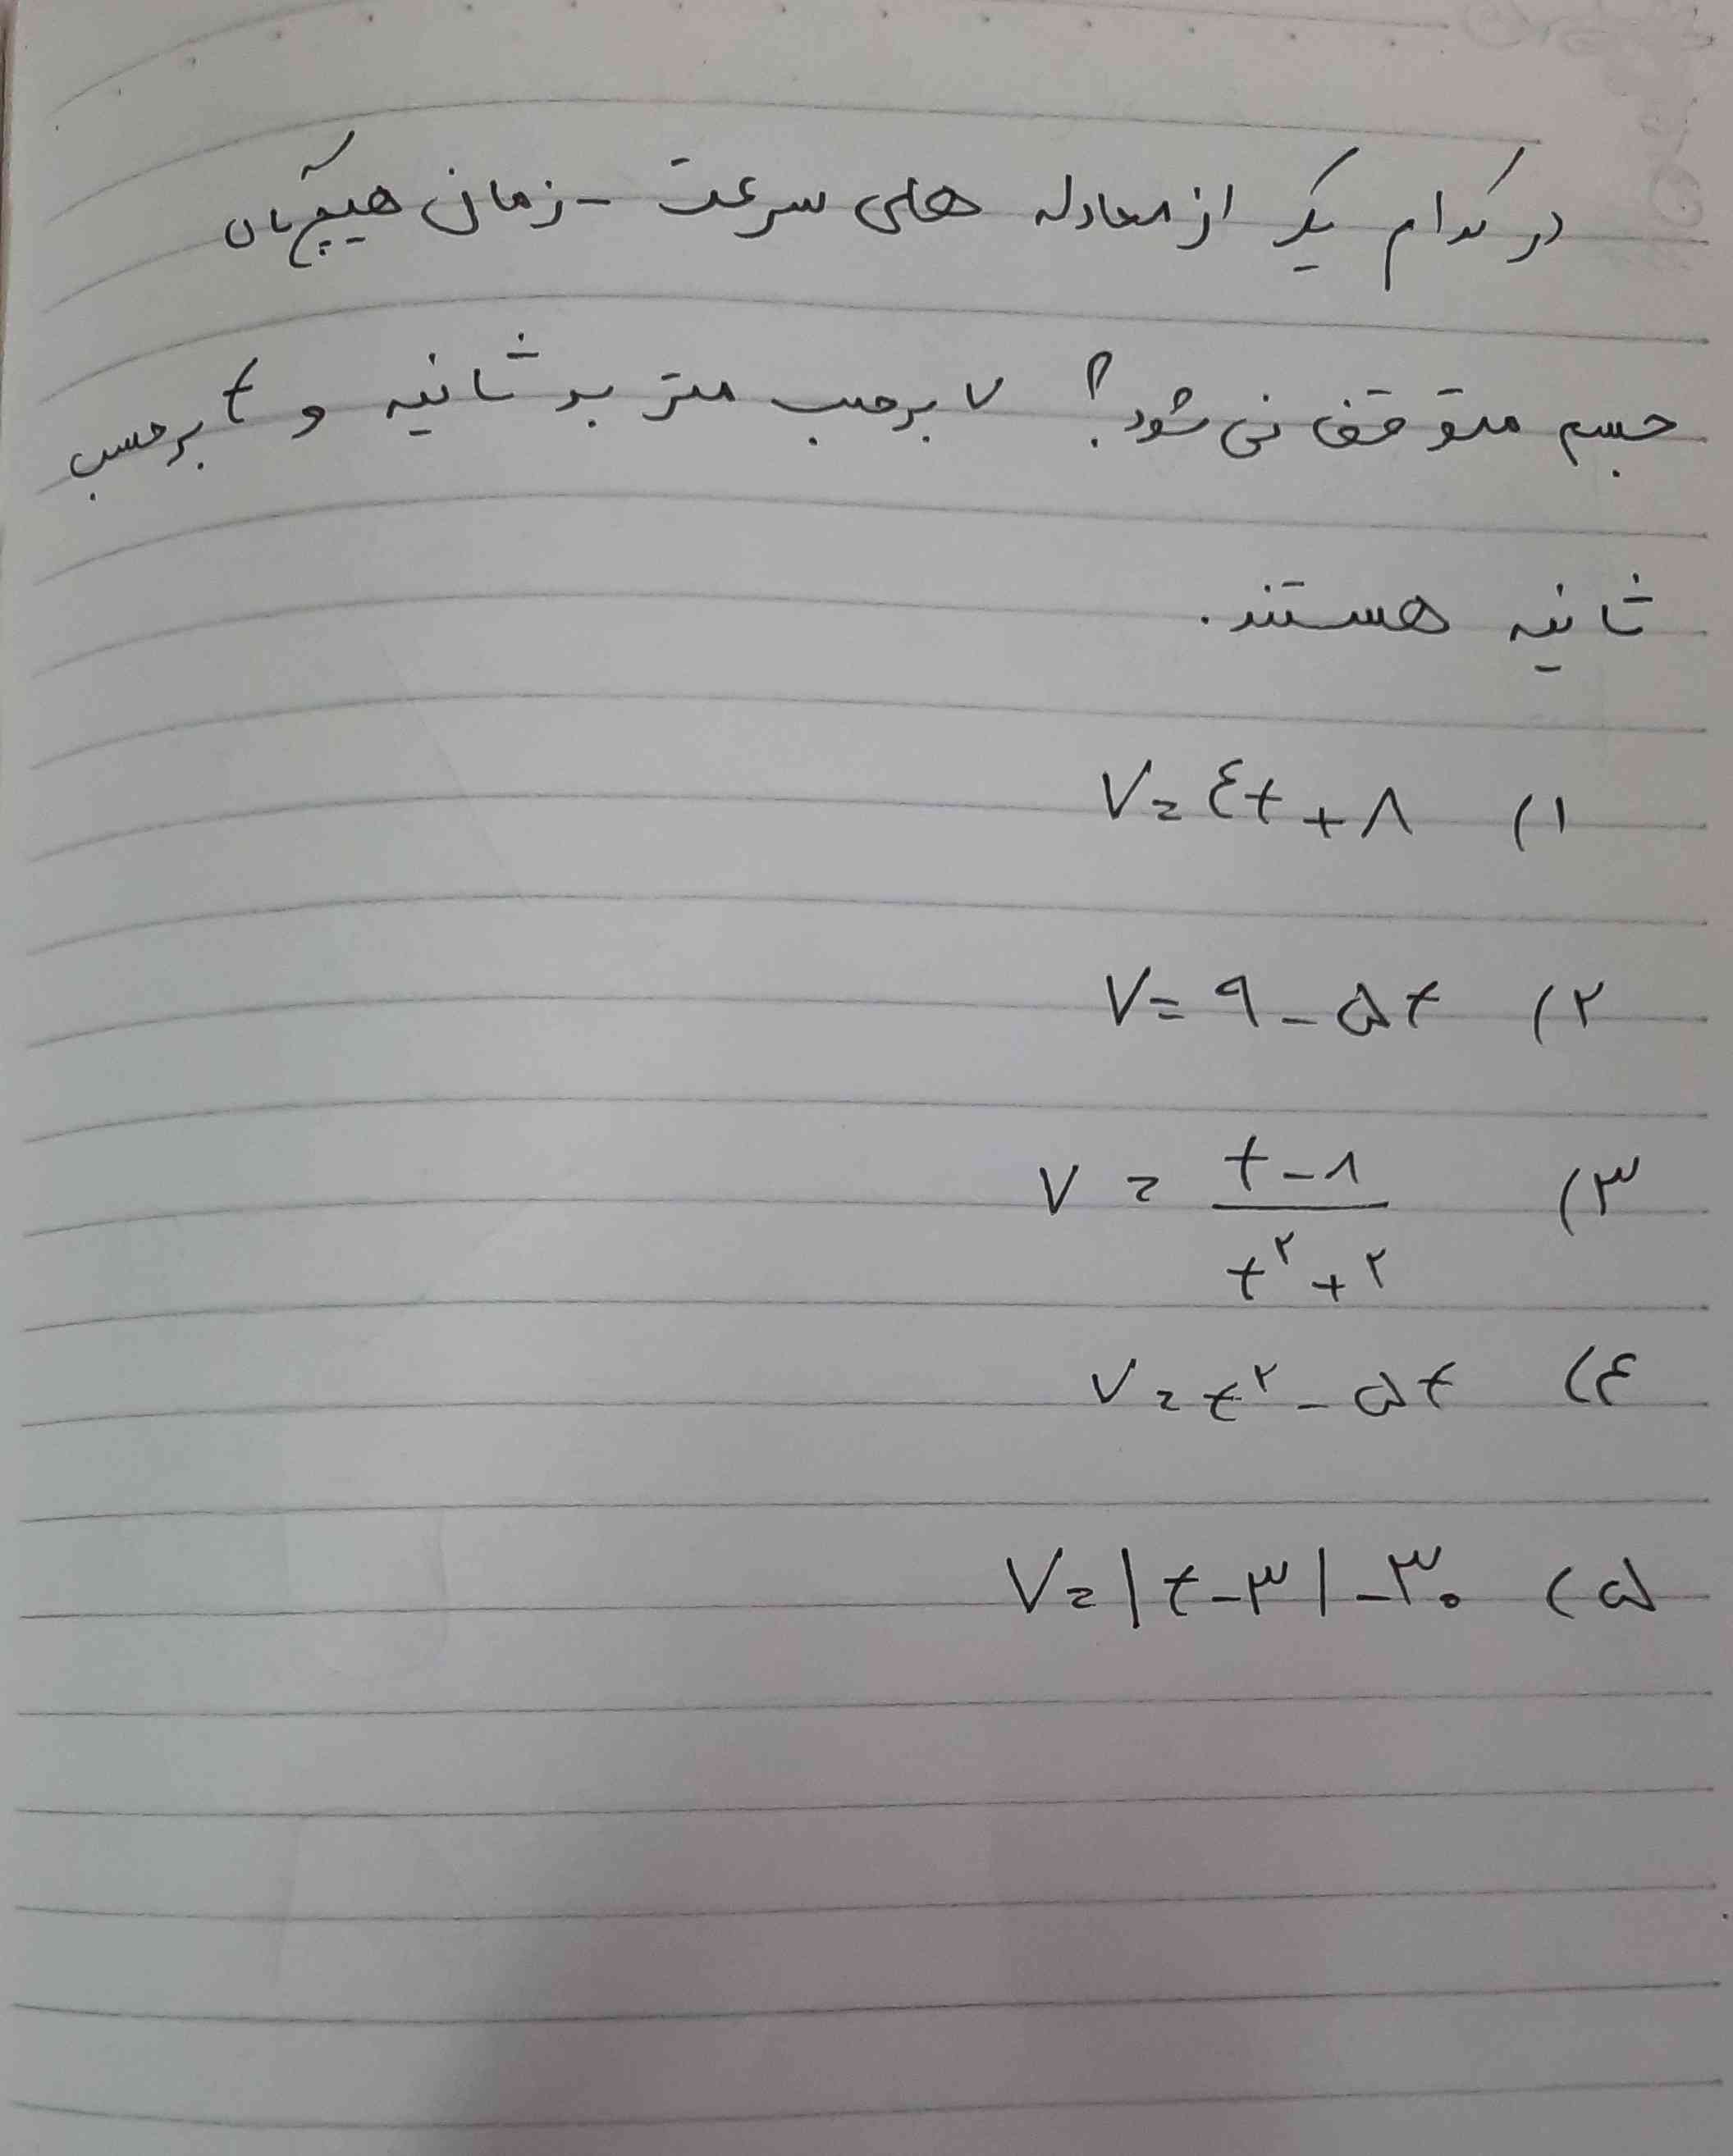 در کدام یک از معادله های سرعت - زمان هیچگاه
جسم متوقف نمی شود؟ v برحسب متر بر ثانیه و t برحسب
ثانیه هستند.
۱) V = ۴t + ۸
۲) V = ۹ - ۵t
۳) V = (t - ۸) / (t² + ۲)
۴) V = t² - ۵t
۵) V = |t - ۳| - ۳۰